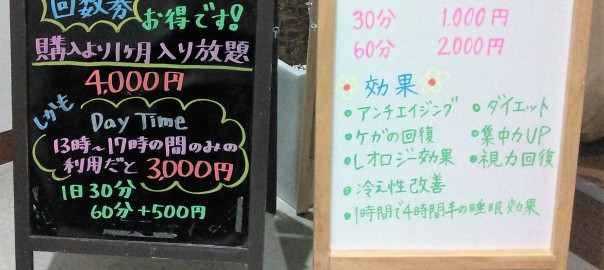 回数券
お得です!
購入より1ヶ月入り放題
4,000円
しかも
Day Time
13時〜17時の間のみの
利用だと 3,000円
1日30分
60分+500円
30分 1,000円
60分 2,000円
効果
・アンチエイジング ・ダイエット
・ケガの回復 ・集中力UP
・レオロジー効果 ・視力回復
・冷え性改善
・1時間で4時間半の睡眠効果